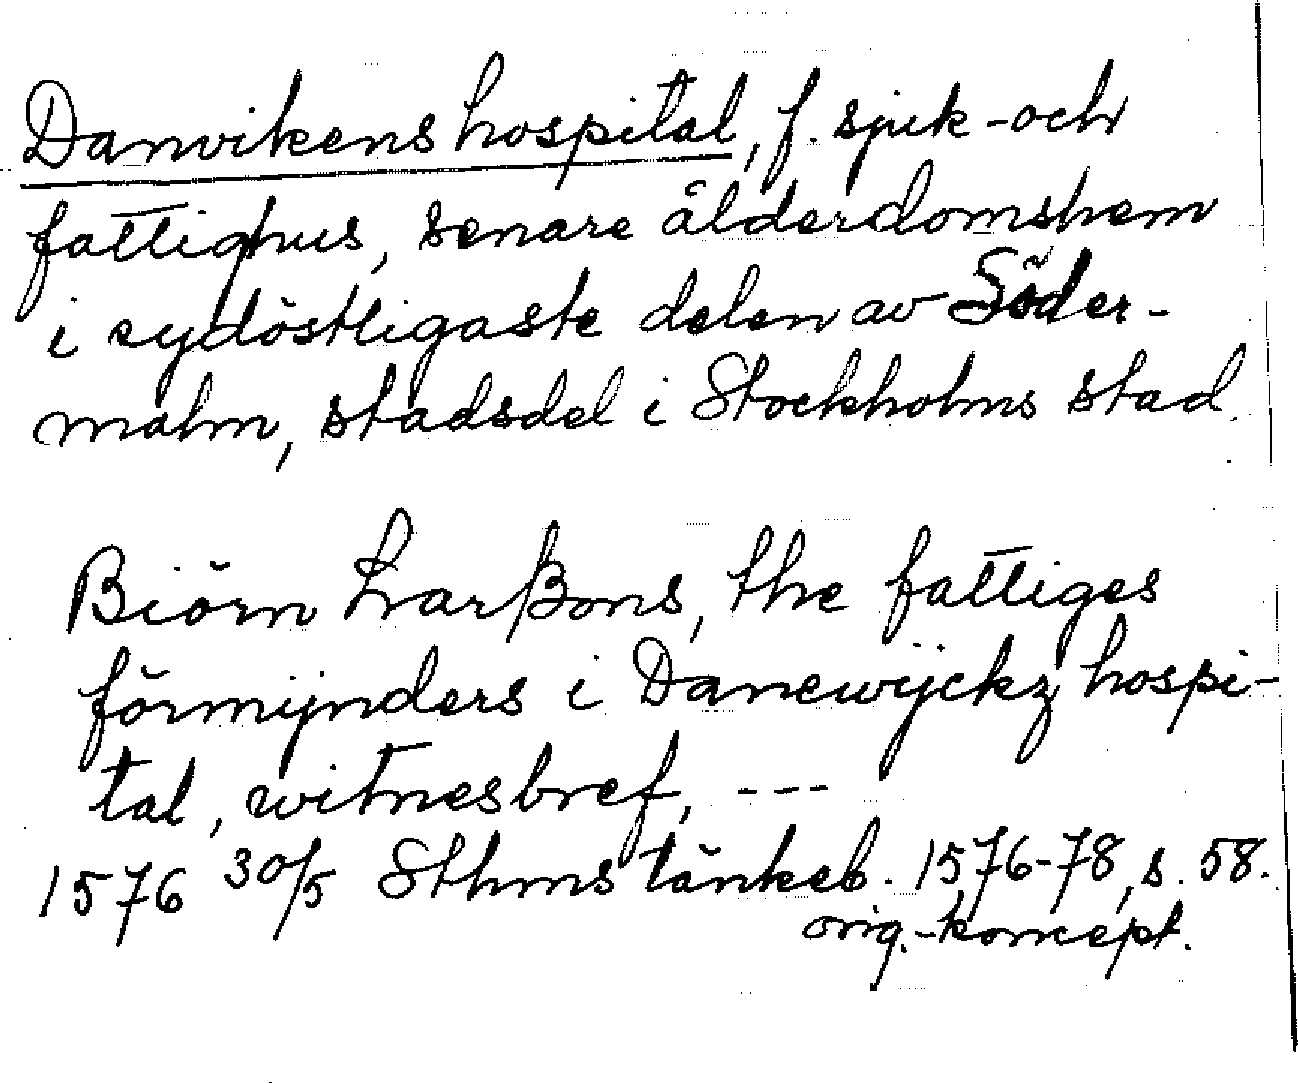 Danvikens hospital, f. sjuk- och
fattighus, senare ålderdomshem
i sydöstligaste delen av Söder-
malm, stadsdel i Stockholms stad.
Biörn Larßons, the fattiges
förmijnders i Danewijckz hospi-
tal, witnesbref, ---
1576 30/5 Sthms tänkeb. 1576-78, s. 58.
orig.-koncept.